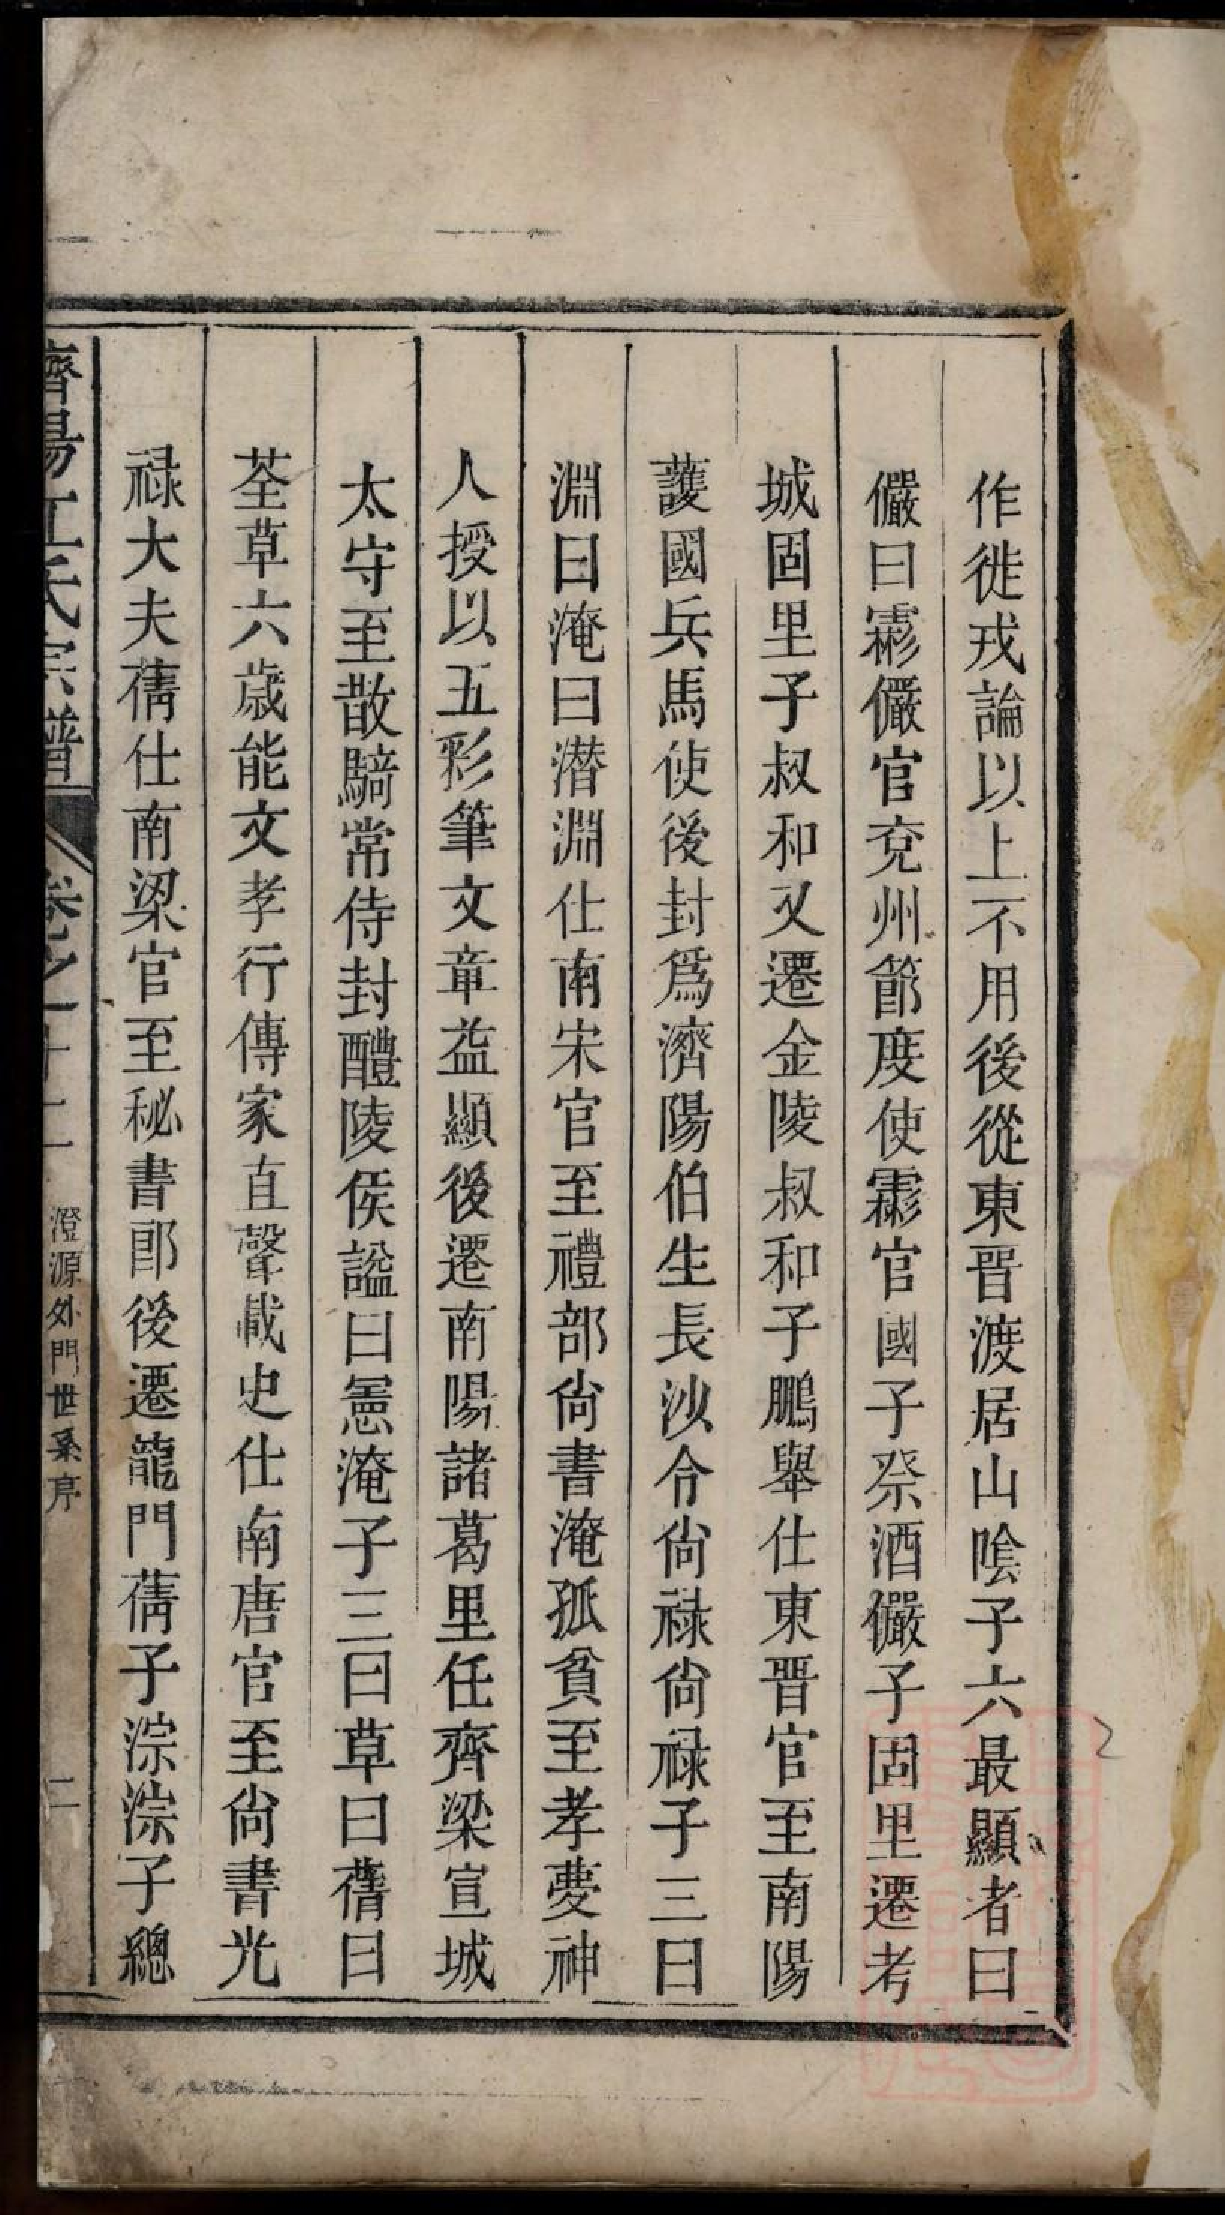 作徙戎論以上不用後從東晋渡居山隂子六最顯者曰
儼曰霦儼官兗州節度使霦官國子祭酒儼子固里遷考
城固里子叔和又遷金陵叔和子鵬舉仕東晋官至南陽
護國兵馬使後封爲濟陽伯生長沙令尙禄尙禄子三曰
淵曰淹曰潜淵仕南宋官至禮部尙書淹孤貧至孝夢神
人授以五彩筆文章益顯後遷南陽諸葛里任齊梁宣城
太守至散騎常侍封醴陵侯謚曰憲淹子三曰草曰蒨曰
荃草六歲能文孝行傳家直聲載史仕南唐官至尙書光
禄大夫蒨仕南梁官至秘書郎後遷龍門蒨子淙淙子總
濟陽江氏宗譜 卷之十二 澄源外門世系序 二